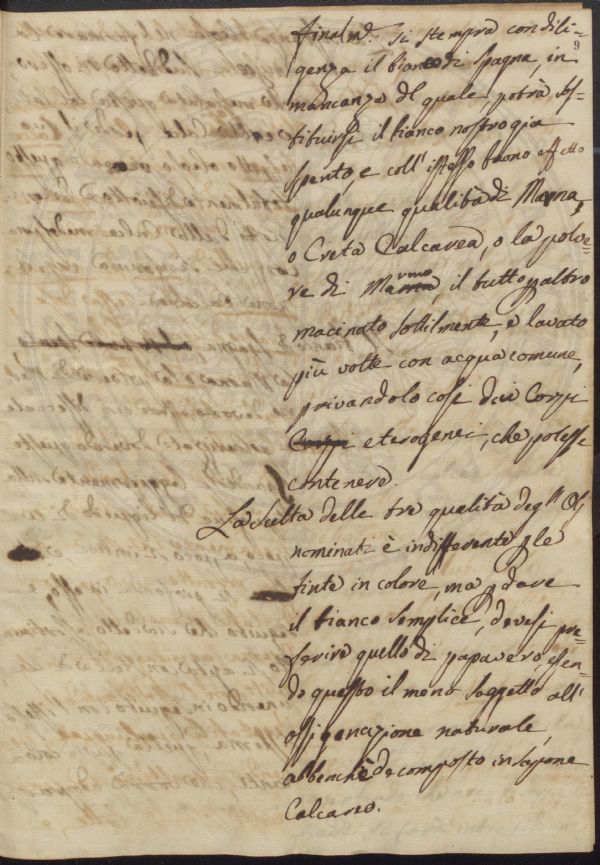 9
finalm.e si stempra con dili=
genza il bianco di Spagna, in
mancanza del quale, potrà sos=
tituirsi il bianco nostro già
spento, e coll' istesso buono effetto
qualunque qualità di Marna,
o Creta Calcarea, o la polve
re di Marmo, il tutto p altro
macinato sottilmente, e lavato
più volte con acqua comune,
privandolo così dei Corpi
eterogenei, che potesse
contenere.
La scelta delle tre qualità degl' Olj
nominati è indifferente p le
tinte in colore, ma p dare
il bianco semplice, devesi pre=
ferire quello di papavero, essen
do questo il meno soggetto all'
ossigenazione naturale,
abbenchè decomposto in sapone
Calcareo.